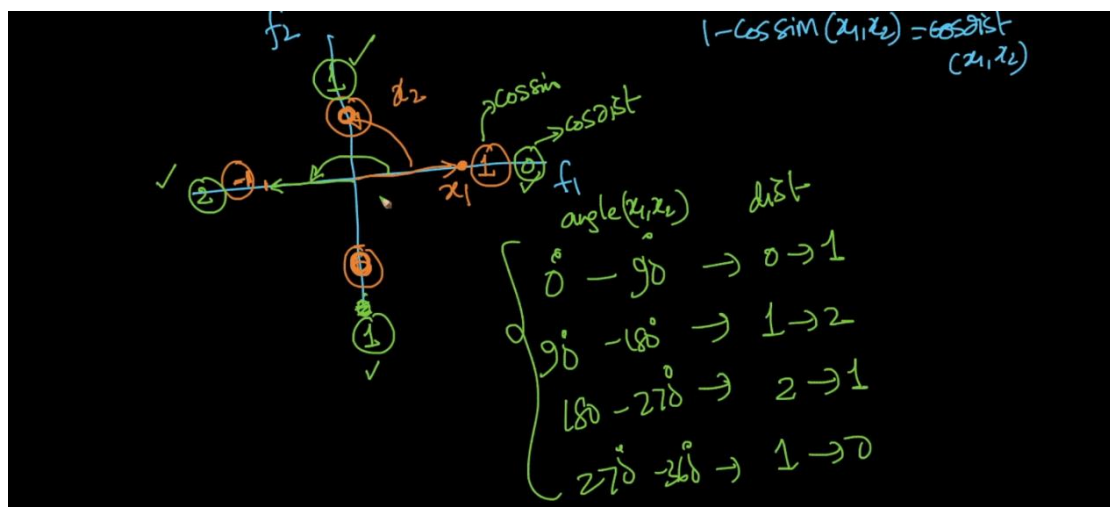 f2
1-cossim(x1,x2) = cosdist
(x1,x2)
1
x2
0
cossim
cosdist
2
-1
x1
1
0
f1
angle(x1,x2) dist
0° - 90° → 0→1
0
90° -180° → 1→2
1
180 - 270° → 2→1
270° -360° → 1→0